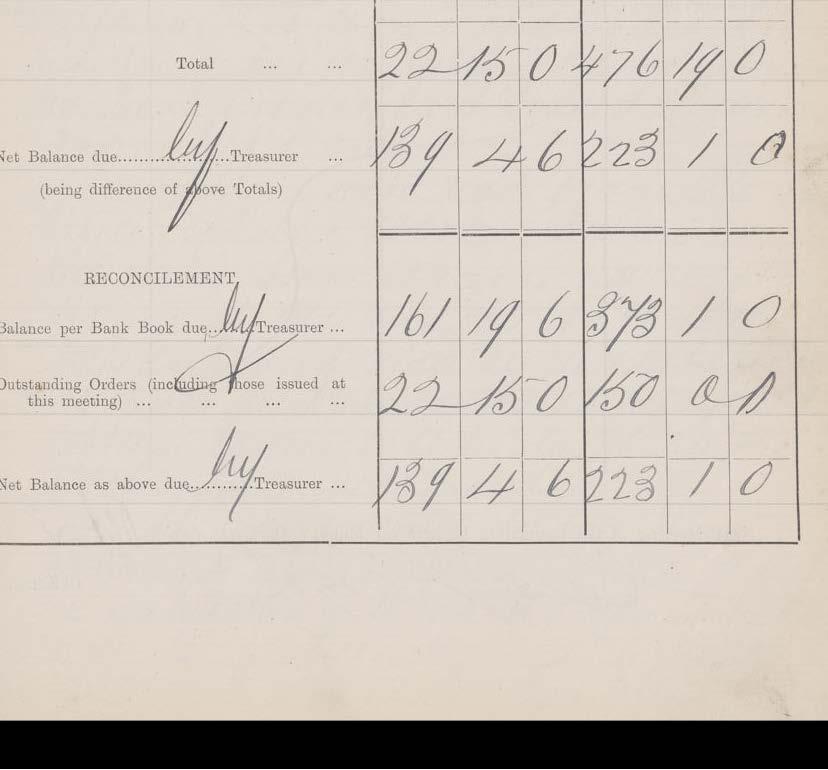 Total ... ... 22 15 0 476 19 0
Net Balance due by Treasurer ... 139 4 6 223 1 0
(being difference of above Totals)
RECONCILEMENT
Balance per Bank Book due by Treasurer ... 161 19 6 373 1 0
Outstanding Orders (including those issued at
this meeting) ... ... ... ... 22 15 0 150 0 0
Net Balance as above due by Treasurer ... 139 4 6 223 1 0